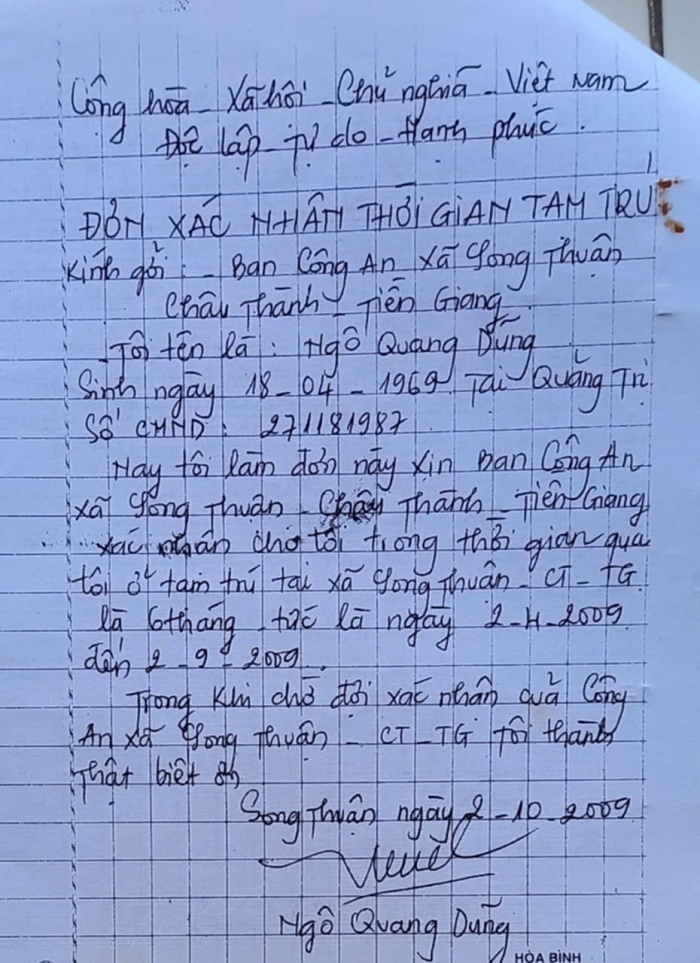 Công hòa - Xã hôi - Chủ nghiã - Việt Nam
Độc lập - Tự do - Hạnh phúc.
ĐƠN XÁC NHÂN THỜI GIAN TAM TRÚ
Kính gởi : - Ban Công An xã Song Thuận
Châu Thành - Tiền Giang
Tôi tên là : Ngô Quang Dũng
Sinh ngày 18 - 04 - 1969 Tại Quảng Trị
Số CMND : 271181987
Nay tôi làm đơn này xin Ban Công An
xã Song Thuận - Châu Thành - Tiền Giang
xác nhân cho tôi trong thời gian qua
tôi ở tam trú tai xã Song Thuận - CT - TG
là 6 tháng tức là ngày 2-4-2009
đến 2 - 9 - 2009.
Trong khi chờ đợi xác nhân quả Công
An xã Song Thuận - CT - TG tôi thành
Thật biết ơn
Song Thuận ngày 2 - 10 - 2009
Ngô Quang Dũng
HÒA BÌNH